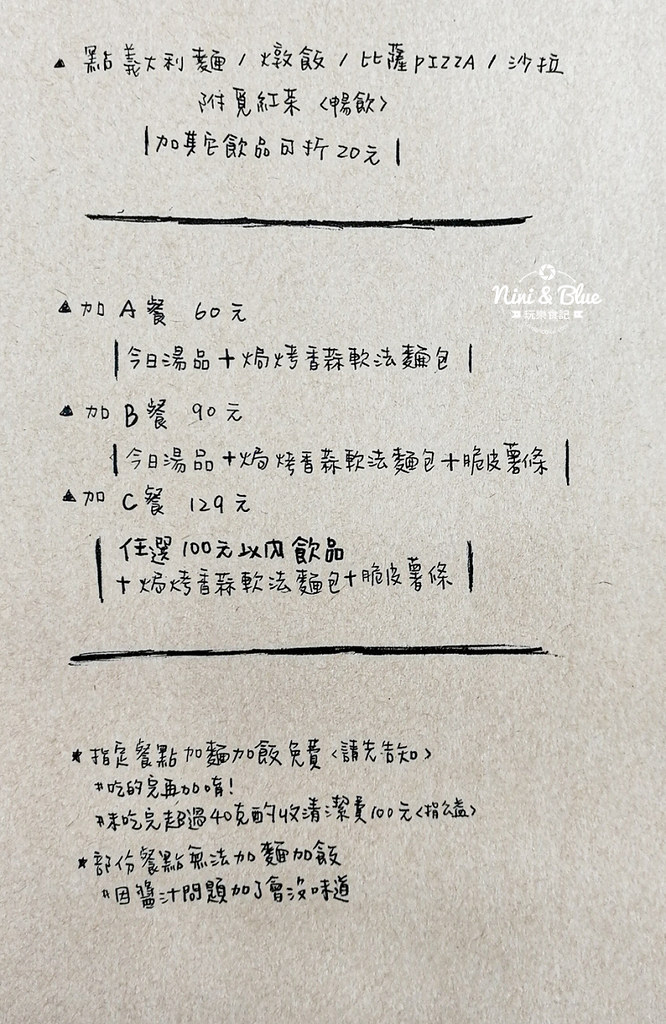 ▲ 點義大利麵 / 燉飯 / 比薩PIZZA / 沙拉
附覓紅茶〈暢飲〉
|加其它飲品可折20元|
Nini & Blue
玩樂食記
▲加 A餐 60元
|今日湯品+焗烤香蒜軟法麵包|
▲加 B餐 90元
|今日湯品+焗烤香蒜軟法麵包+脆皮薯條|
▲加 C餐 129元
|任選100元以內飲品
+焗烤香蒜軟法麵包+脆皮薯條|
★指定餐點加麵加飯免費〈請先告知〉
〃吃的完再加唷!
〃未吃完超過40克酌收清潔費100元〈捐公益〉
★部份餐點無法加麵加飯
〃因醬汁問題加了會沒味道